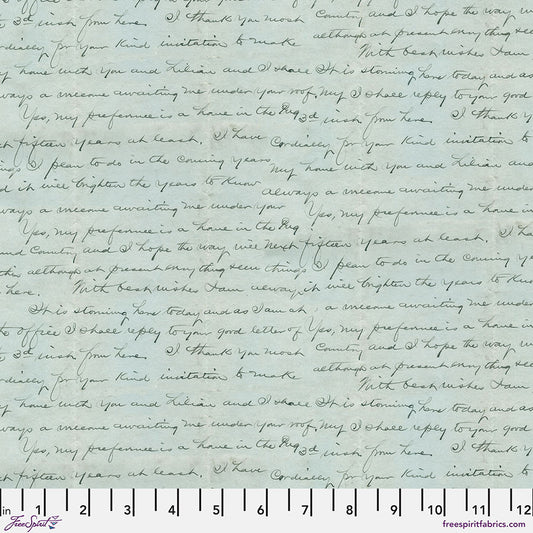 3d inst from here. I thank you most Country and I hope the way wi
ordially for your kind invitation to make although at present everything see
With best wishes I am
y home with you and Lilian and I shall It is storming here today and as
ways a welcome awaiting me under your roof. My I shall reply to your good
Yes, my preference is a home in the 3d inst from here. I thank y
t fifteen years at least. I have Cordially for your kind invitation to
ings I plan to do in the coming years my home with you and Lilian and
d it will brighten the years to know always a welcome awaiting me unde
ways a welcome awaiting me under your Yes, my preference is a home in
Yes, my preference is a home in the next fifteen years at least. I ha
nd Country and I hope the way will things I plan to do in the coming y
this although at present everything seem
here. With best wishes I am always it will brighten the years to know
It is storming here today and as I am at a welcome awaiting me under
office I shall reply to your good letter of Yes, my preference is a home in
3d inst from here. I thank you most Country and I hope the way w
ordially for your kind invitation to make although at present everything see
With best wishes I am
y home with you and Lilian and I shall It is storming here today and as
ways a welcome awaiting me under your roof. My I shall reply to your good
Yes, my preference is a home in the 3d inst from here. I thank y
t fifteen years at least. I have Cordially for your kind invitation to
in 1 2 3 4 5 6 7 8 9 10 11 12
FreeSpirit freespiritfabrics.com